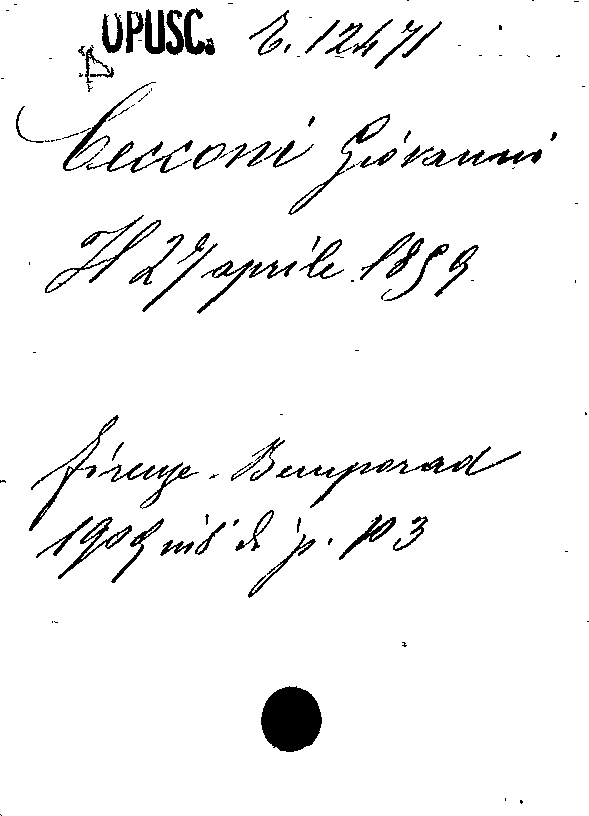 OPUSC. E. 12471
Cecconi Giovanni
Il 27 aprile 1859
Firenze - Bemporad
1909 in 8° di p. 103